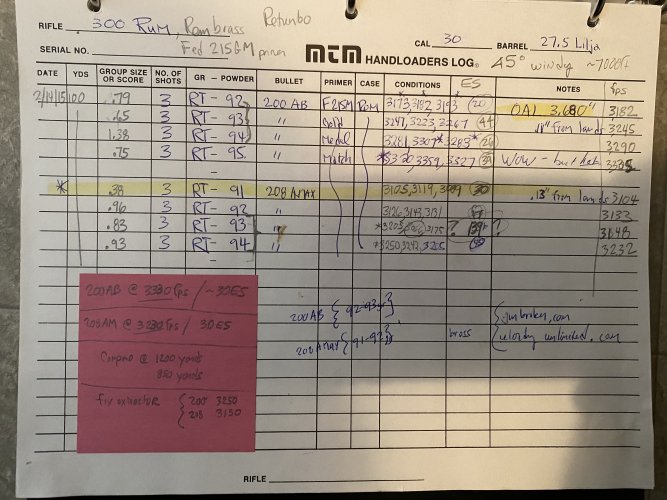 RIFLE .300 RUM, Rem brass Retumbo
Fed 215GM primers
SERIAL NO. MTM HANDLOADERS LOG® CAL. 30 BARREL 27.5 Lilja
45° windy ~7000ft
DATE YDS GROUP SIZE OR SCORE NO. OF SHOTS GR - POWDER BULLET PRIMER CASE CONDITIONS ES NOTES fps
2/14/15 100 .79 3 RT - 92 200 AB F215M RUM 3173, 3182, 3193 20 OAL 3.680" 3182
.65 3 RT - 93 " Gold 3247, 3223, 3267 44 .11" from lands 3245
1.38 3 RT - 94 " Medal 3281, 3307* 3283* 26 3290
.75 3 RT - 95 " Match 3359, 3327 WOW -
* .38 3 RT - 91 208 AMAX 3105, 3119, 3089 30 .13" from lands 3104
.96 3 RT - 92 " 3133
.83 3 RT - 93 " 3175 ? ?
.93 3 RT - 94 " *3250, 3242, 3205 3232
200AB @ 3330 fps / ~30ES
208AM @ 3230 fps / 30ES
Compmo @ 1200 yards
850 yards
fix extractor { 200 3250
208 3150
200 AB { 92-93gr }
208 AMAX { 91-92 } brass
{ gunbroker.com
velocity unlimited.com
RIFLE